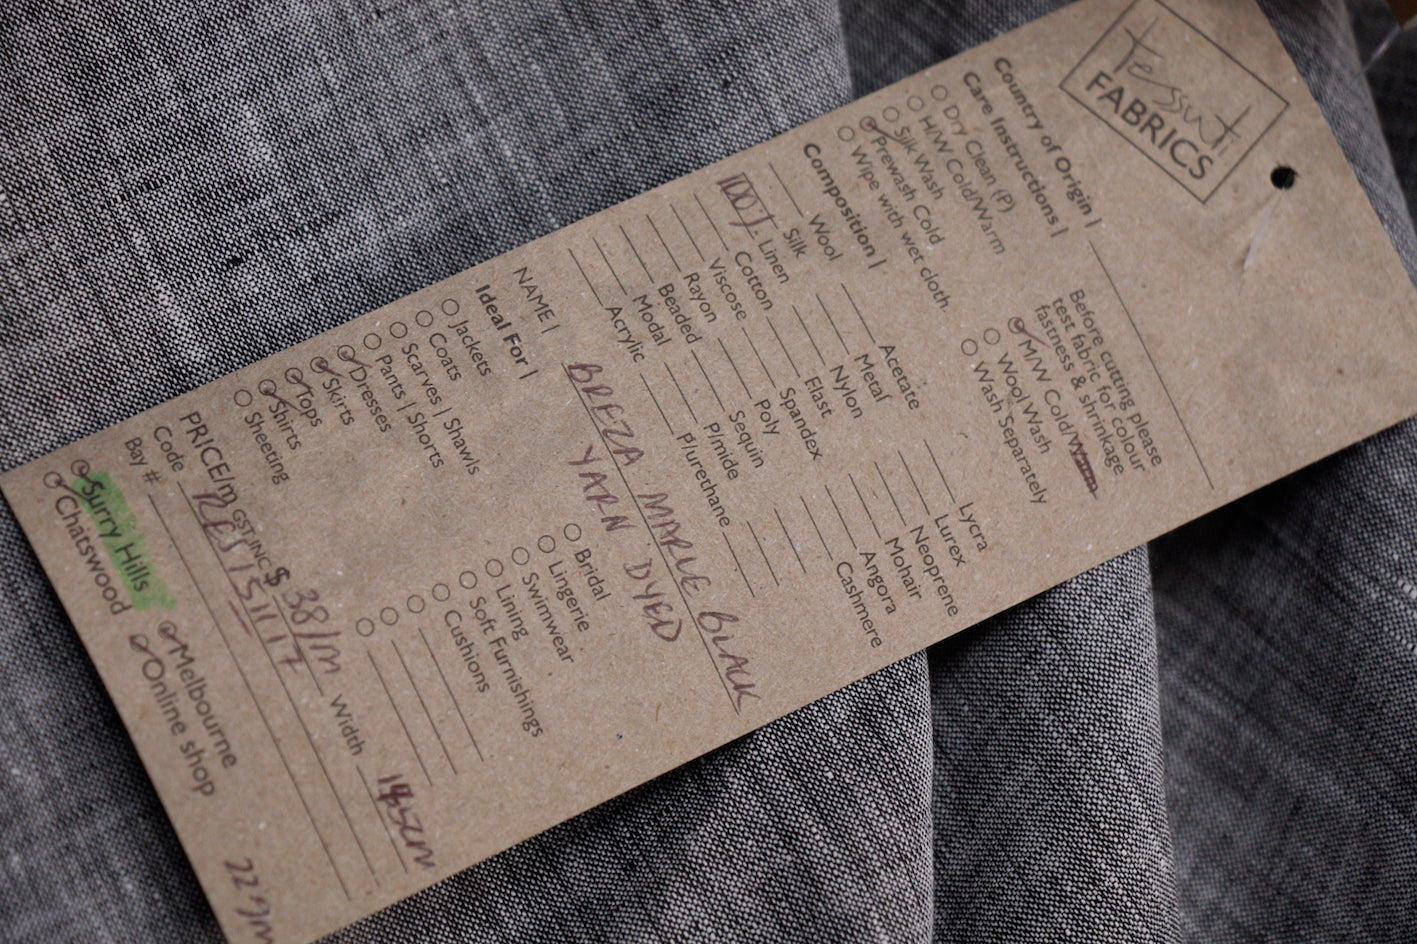 tessuti
FABRICS
Country of Origin |
Care Instructions |
Dry Clean (P)
H/W Cold/Warm
Silk Wash
Prewash Cold
Wipe with wet cloth
Before cutting please
test fabric for colour
fastness & shrinkage
M/W Cold/Warm
Wool Wash
Wash Separately
Composition |
Wool Acetate Lycra
Silk Metal Lurex
100% Linen Nylon Neoprene
Cotton Elast Mohair
Viscose Spandex Angora
Rayon Poly Cashmere
Beaded Sequin
Modal P/mide
Acrylic P/urethane
NAME | BREZA MARLE BLACK
YARN DYED
Ideal For |
Jackets Bridal
Coats Lingerie
Scarves | Shawls Swimwear
Pants | Shorts Lining
Dresses Soft Furnishings
Skirts Cushions
Tops
Shirts
Sheeting
PRICE/m GST.INC $ 38/m Width
Code
Bay #
Surry Hills Melbourne
Chatswood Online shop